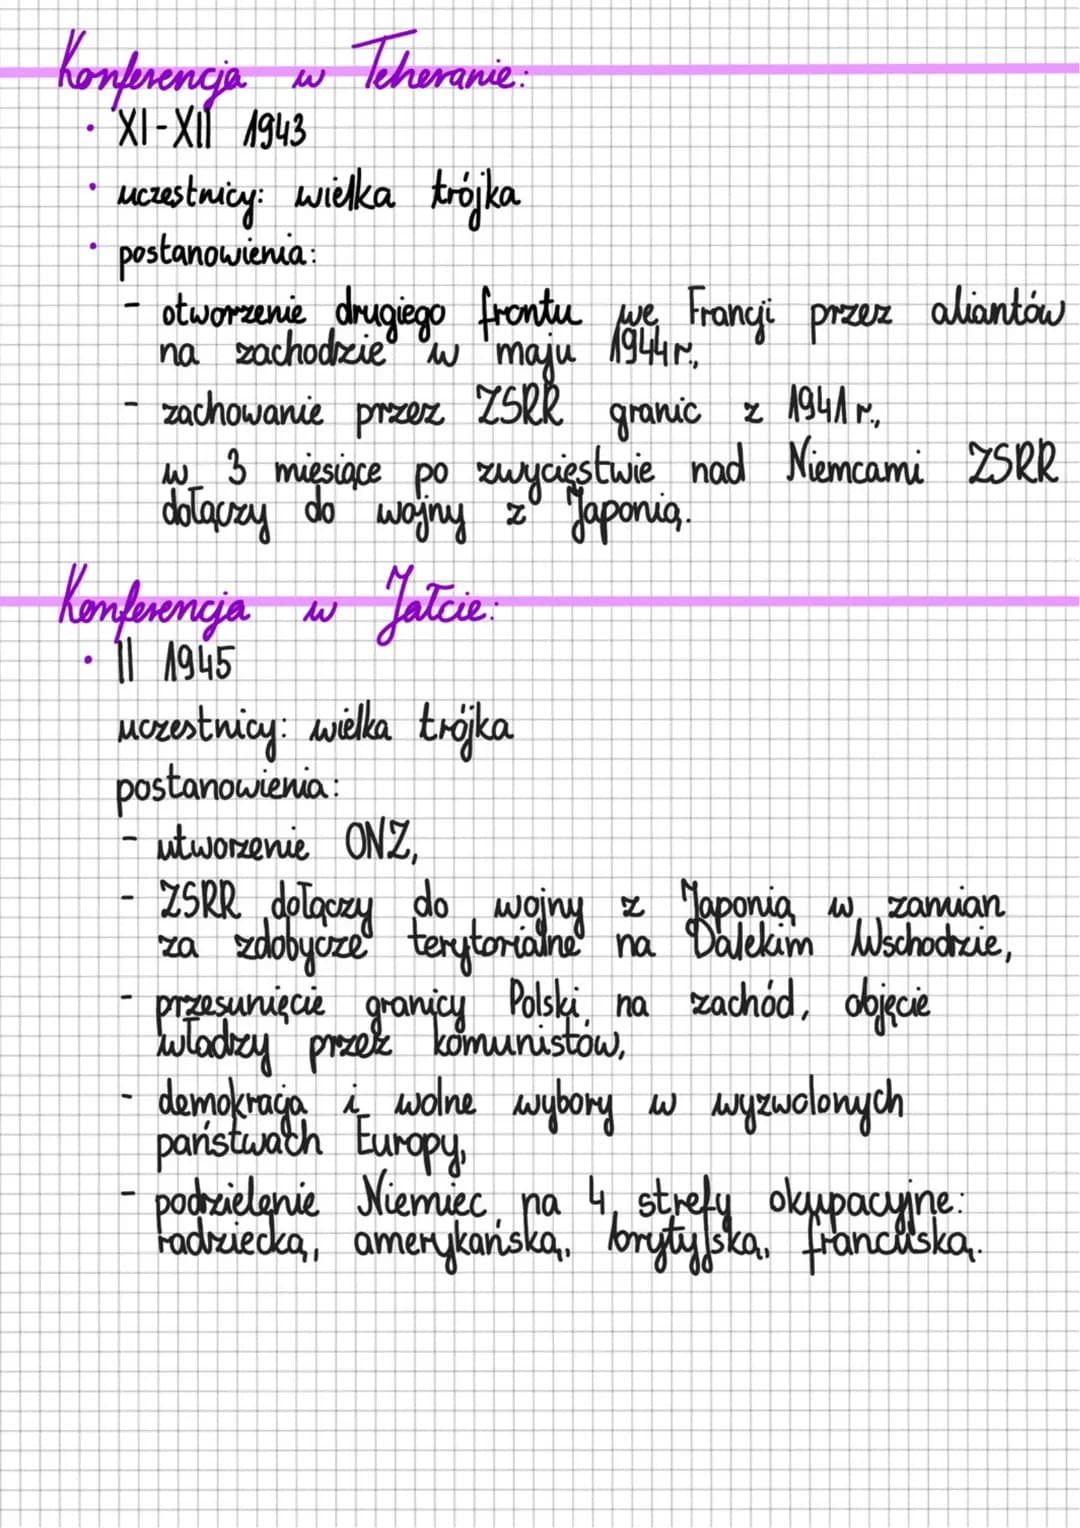 Konferencja w Teheranie:
• XI-XII 1943
• uczestnicy: wielka trójka
• postanowienia:
- otworzenie drugiego frontu we Francji przez aliantów
na zachodzie w maju 1944r.,
- zachowanie przez ZSRR granic z 1941r.,
w 3 miesiące po zwycięstwie nad Niemcami ZSRR
dołączy do wojny z Japonią.
Konferencja w Jałcie:
• II 1945
uczestnicy: wielka trójka
postanowienia:
- utworzenie ONZ,
- ZSRR dołączy do wojny z Japonią w zamian
za zdobycze terytorialne na Dalekim Wschodzie,
- przesunięcie granicy Polski na zachód, objęcie
władzy przez komunistów,
- demokracja i wolne wybory w wyzwolonych
państwach Europy,
- podzielenie Niemiec na 4 strefy okupacyjne:
radziecką, amerykańską, brytyjską, francuską.